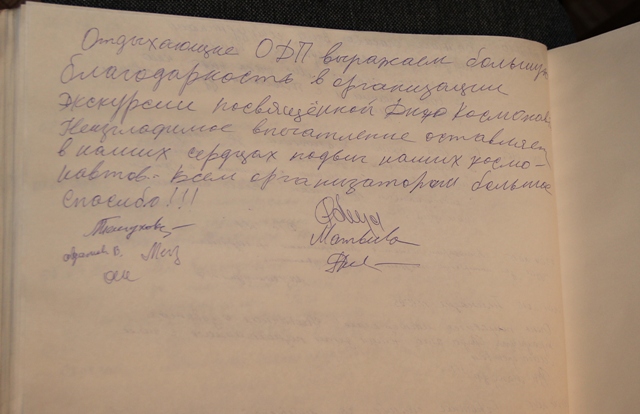 Отдыхающие ОДП выражаем большую
благодарность в организации
экскурсии посвящённой Дню Космонав
Неизгладимое впечатление оставляет
в наших сердцах подвиг наших космо-
навтов. Всем организаторам большое
спасибо!!!
Матвеева